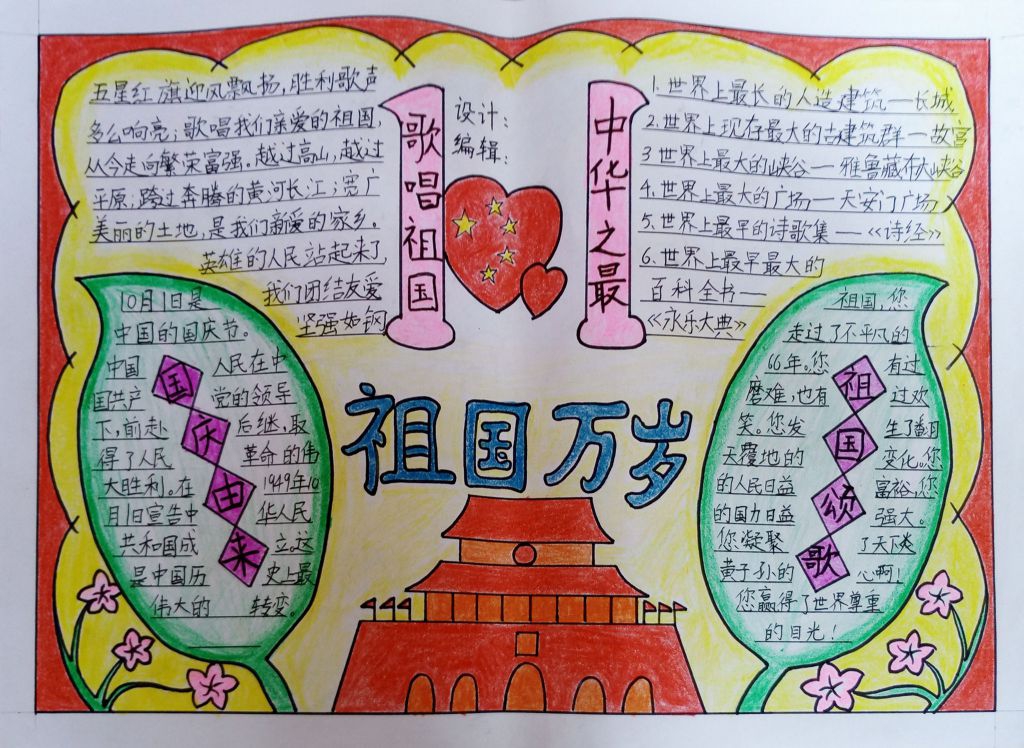 五星红旗迎风飘扬,胜利歌声
多么响亮;歌唱我们亲爱的祖国,
从今走向繁荣富强。越过高山,越过
平原;跨过奔腾的黄河长江;宽广
美丽的土地,是我们亲爱的家乡。
英雄的人民站起来了
我们团结友爱
坚强如钢
歌唱祖国
设计:
编辑:
中华之最
1.世界上最长的人造建筑—长城
2.世界上现存最大的古建筑群—故宫
3世界上最大的峡谷—雅鲁藏布大峡谷
4.世界上最大的广场—天安门广场
5.世界上最早的诗歌集—《诗经》
6.世界上最早最大的
百科全书—
《永乐大典》
祖国万岁
国庆由来
10月1日是
中国的国庆节。
中国 人民在中
国共产 党的领导
下,前赴 后继,取
得了人民 革命的伟
大胜利。在 1949年10
月1日宣告中 华人民
共和国成 立。这
是中国历 史上最
伟大的 转变。
祖国颂歌
祖国,您
走过了不平凡的
66年。您 有过
磨难,也有 过欢
笑。您发 生了翻
天覆地的 变化。您
的人民日益 富裕,您
的国力日益 强大。
您凝聚 了天下炎
黄子孙的 心啊!
您赢得了世界尊重
的目光!